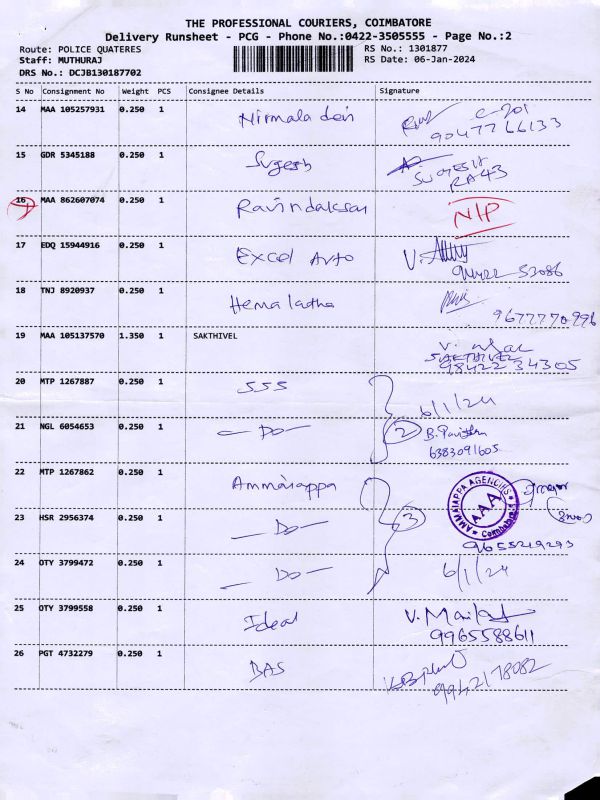 THE PROFESSIONAL COURIERS, COIMBATORE
Delivery Runsheet - PCG - Phone No.:0422-3505555 - Page No.:2
Route: POLICE QUATERES RS No.: 1301877
Staff: MUTHURAJ RS Date: 06-Jan-2024
DRS No.: DCJB130187702
S No Consignment No Weight PCS Consignee Details Signature
14 MAA 105257931 0.250 1 Nirmala devi C-201
90477 66133
15 GDR 5345188 0.250 1 Sugesh
SUGESH
RA43
16 MAA 862607074 0.250 1 N/P
17 EDQ 15944916 0.250 1 Excel Auto
53086
18 TNJ 8920937 0.250 1 Hemalatha
9677770996
19 MAA 105137570 1.350 1 SAKTHIVEL
SAKTHIVEL
98422 34305
20 MTP 1267887 0.250 1 SSS 6/1/24
21 NGL 6054653 0.250 1 — Do — 2
6383091605
22 MTP 1267862 0.250 1 Ammaiappa AMMAIAPPA AGENCIES
AAA
Coimbatore
23 HSR 2956374 0.250 1 — Do — 3
24 OTY 3799472 0.250 1 — Do — 6/1/24
25 OTY 3799558 0.250 1 Ideal
9965588611
26 PGT 4732279 0.250 1 BAS
9942178082